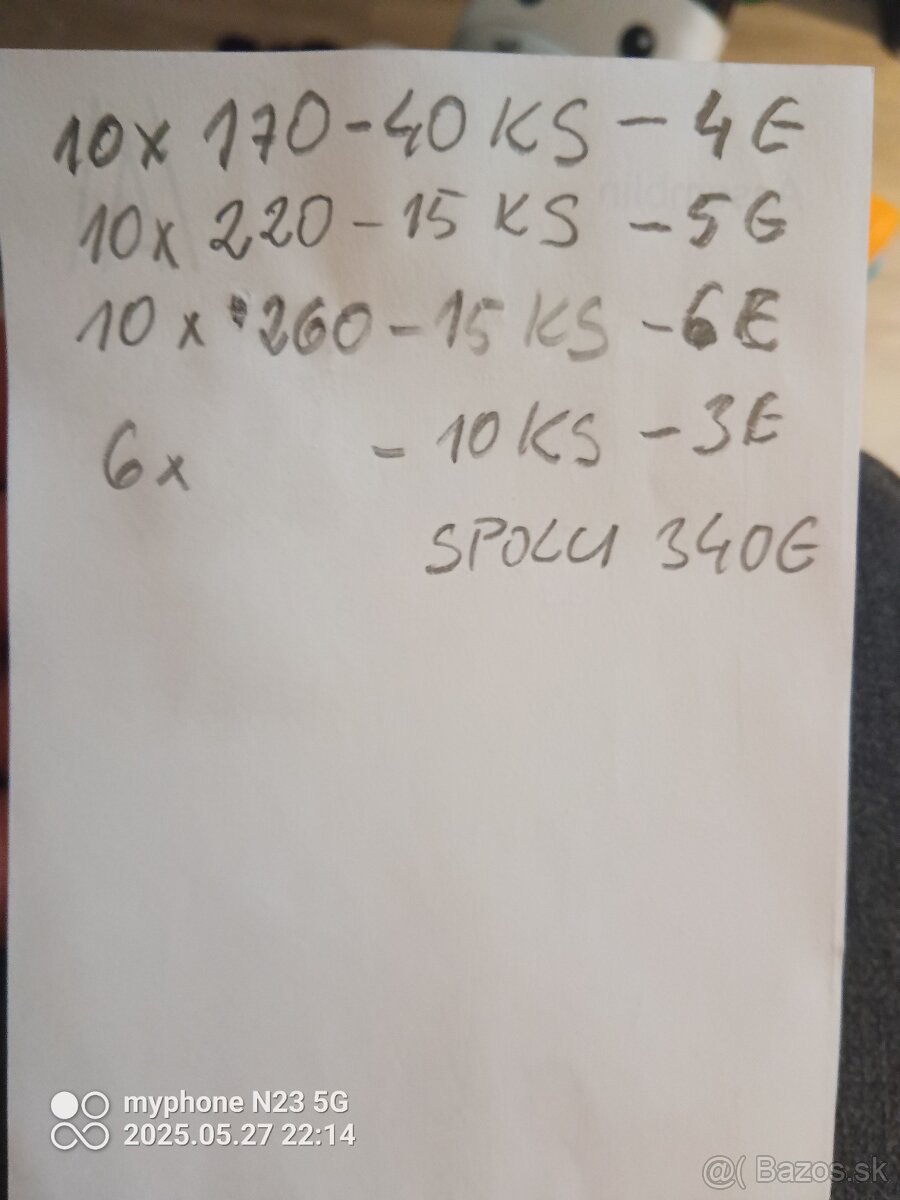 10x 170 - 40 KS - 4E
10x 220 - 15 KS - 5E
10 x 260 - 15 KS - 6E
6x - 10 KS - 3E
SPOLU 340E
myphone N23 5G
2025.05.27 22:14
@( Bazos.sk